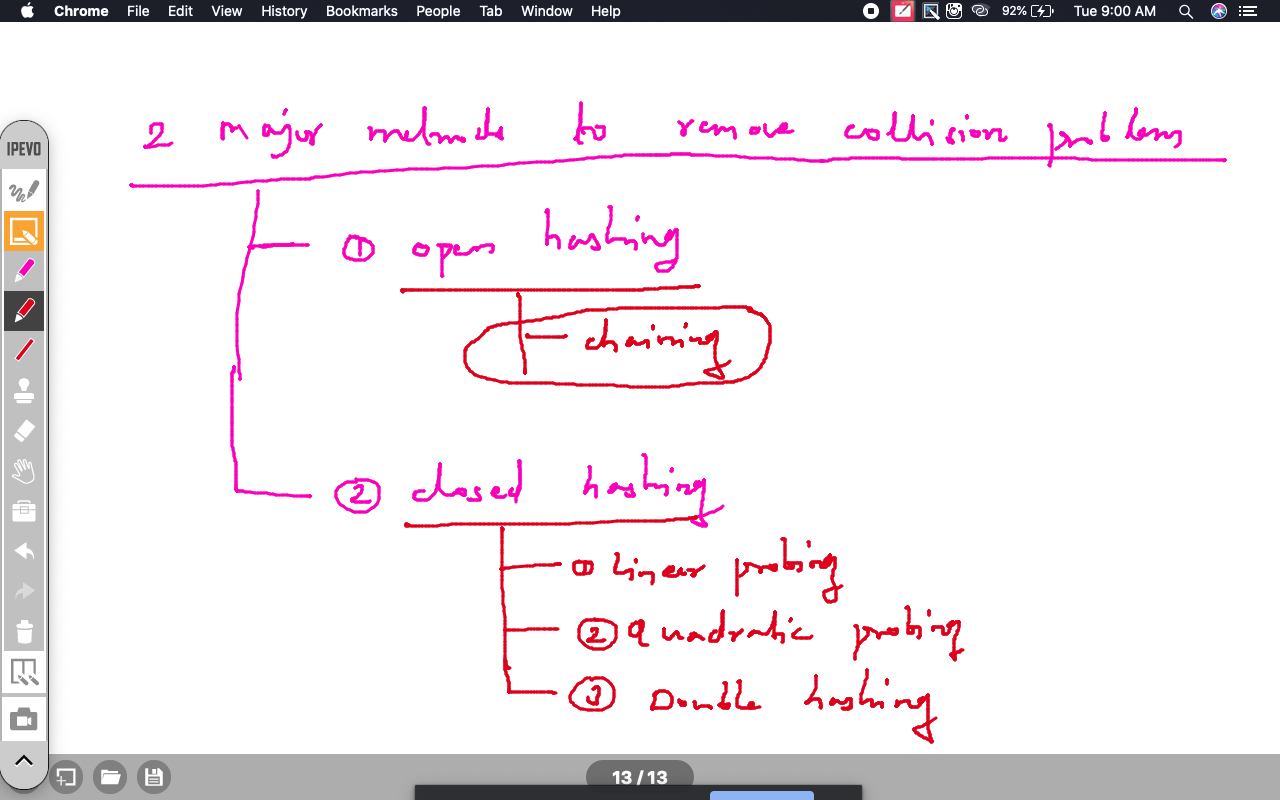 Chrome File Edit View History Bookmarks People Tab Window Help 92% Tue 9:00 AM
IPEVO
2 major methods to remove collision problem
① open hashing
chaining
② closed hashing
① Linear probing
② Quadratic probing
③ Double hashing
13 / 13